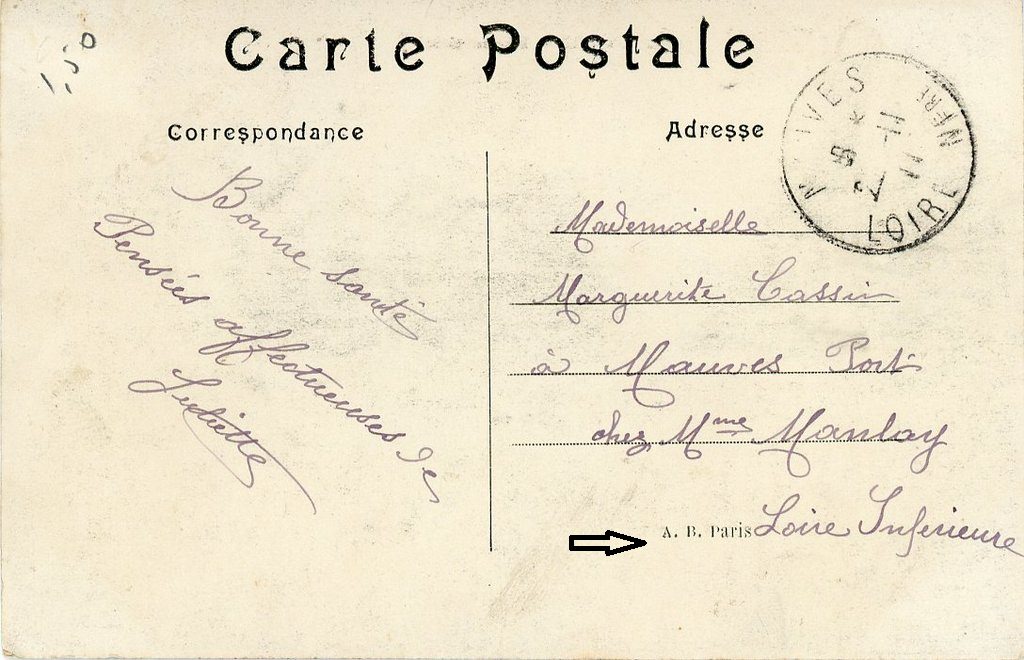 1,50
Carte Postale
Correspondance
Adresse
Bonne santé
Pensées affectueuses de
Juliette
MAUVES
8 * 2 -11 11
LOIRE INFRE
Mademoiselle
Marguerite Cassin
à Mauves Port
chez Mme Manlay
A. B. Paris Loire Inferieure